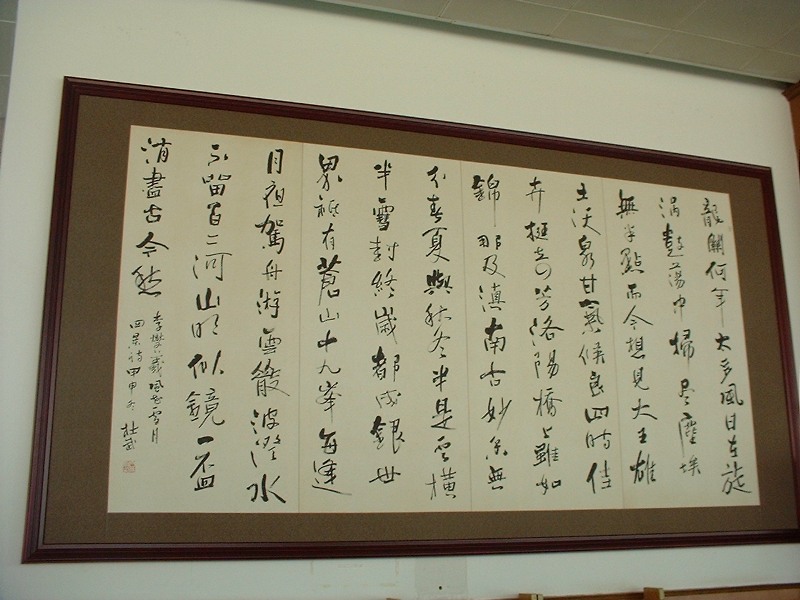 龍關何年太多風日在旋
渦鼓蕩中掃尽塵埃
無半點而今想見大王雄
土沃泉甘氣候良四時佳
卉挺奇芳洛陽橋上雖如
錦那及滇南古妙香無
分春夏與秋冬半是雲橫
半雪封終歲都成銀世
界祗有蒼山十九峯每逢
月夜駕舟游雲散波澄水
不留百二河山明似鏡一盃
消盡古今愁
李燮羲風花雪月
四景詩甲申冬